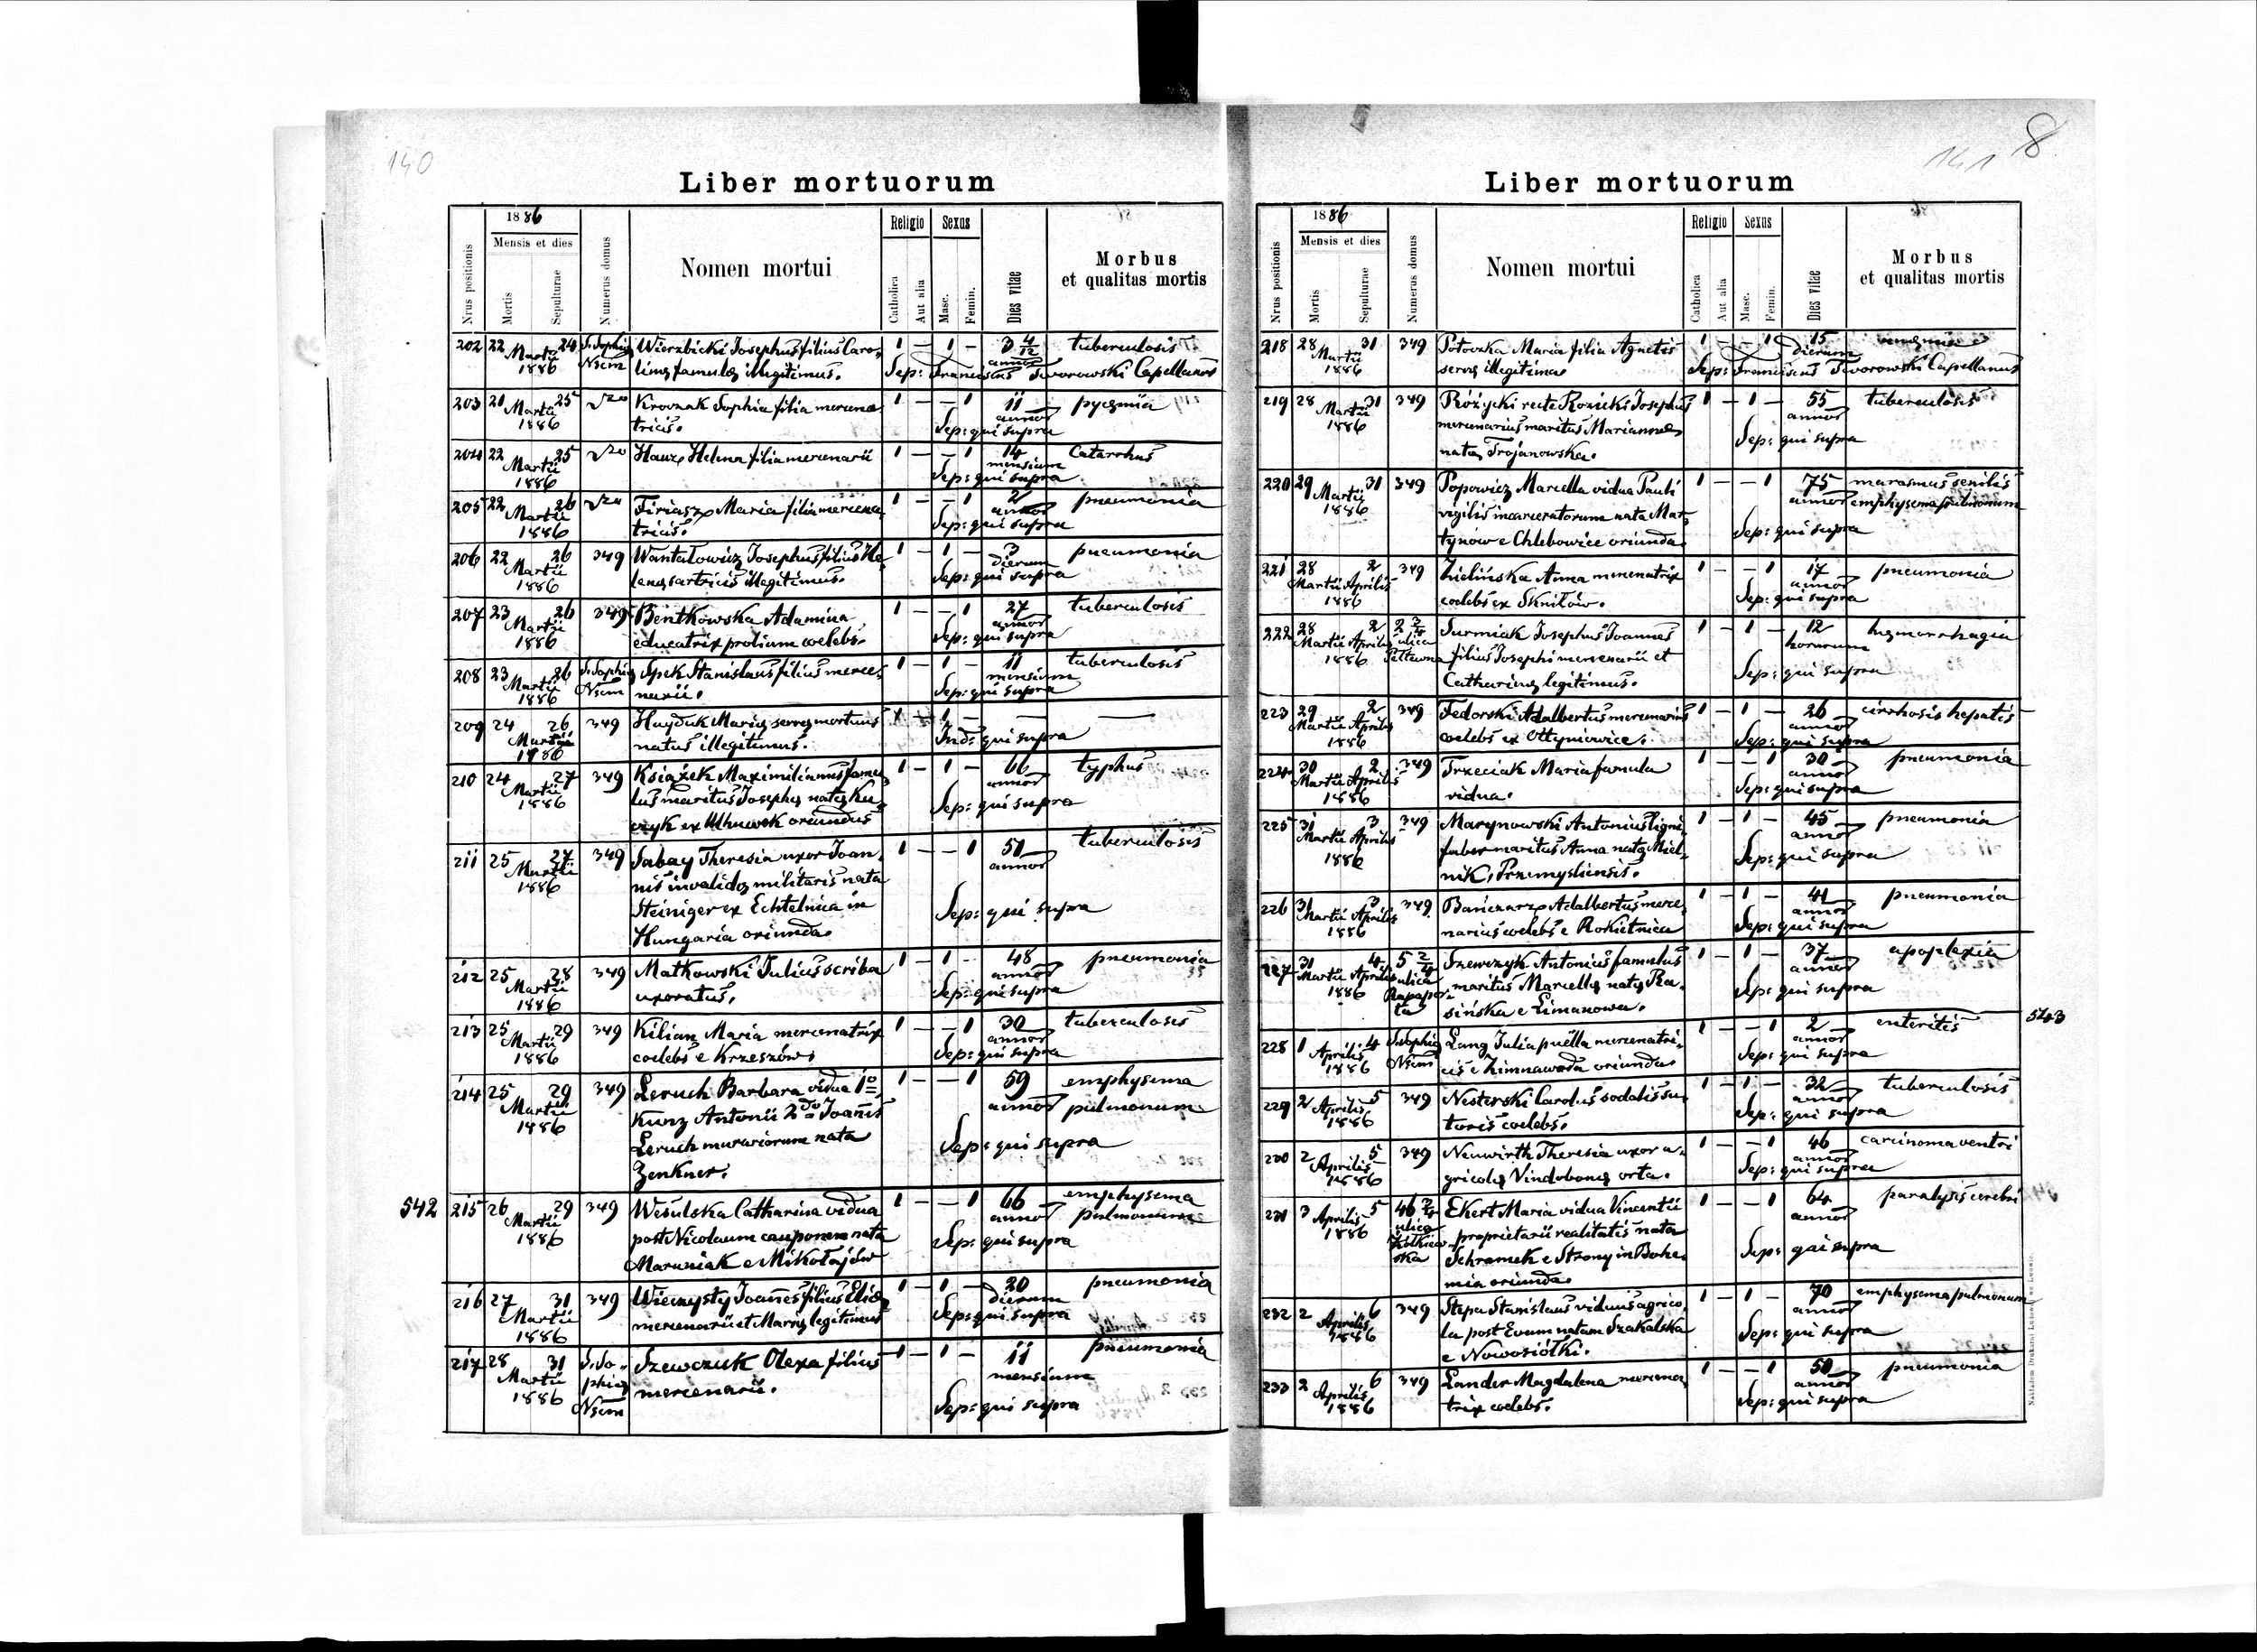 140
Liber mortuorum
1886
Mensis et dies
Nrus positionis
Mortis
Sepulturae
Numerus domus
Nomen mortui
Religio
Catholica
Aut alia
Sexus
Masc.
Femin.
Dies vitae
Morbus
et qualitas mortis
202 22 Martii 24 1886 S. Sophia Nsem Wierzbicki Josephus filius Caro- 1 — 1 — 3 4/12 annor tuberculosis
linæ famulæ illegitimus. Sep: Franciscus Tworowski Capellanus
203 21 Martii 25 1886 Kroczak Sophia filia mercena- 1 — — 1 11 annor pyæmia
tricis. Sep: qui supra
204 22 Martii 25 1886 Hauz Helena filia mercenarii 1 — — 1 14 mensium Catarrhus
Sep: qui supra
205 22 Martii 26 1886 Firiasz Maria filia mercena- 1 — — 1 2 annor pneumonia
tricis. Sep: qui supra
206 22 Martii 26 1886 349 Wantałowicz Josephus filius He- 1 — 1 — 3 dierum pneumonia
lenæ sartricis illegitimus. Sep: qui supra
207 23 Martii 26 1886 349 Bentkowska Adamina 1 — — 1 27 annor tuberculosis
educatrix prolium coelebs. Sep: qui supra
208 23 Martii 26 1886 S. Sophia Nsem Spek Stanislaus filius merce- 1 — 1 — 11 mensium tuberculosis
narii. Sep: qui supra
209 24 26 Martii 1886 349 Hayduk Mariæ servæ mortuus 1 — — —
natus illegitimus. Ind: qui supra
210 24 Martii 27 1886 349 Książek Maximilianus famu- 1 — 1 — 66 annor typhus
lus maritus Josephæ natæ Ku-
czyk ex Uhnowek oriundus Sep: qui supra
211 25 27 Martii 1886 349 Sabay Theresia uxor Joan- 1 — — 1 51 annor tuberculosis
nis invalidæ militaris nata
Steiniger ex Echtelnica in
Hungaria oriunda. Sep: qui supra
212 25 Martii 28 1886 349 Matkowski Julius scriba 1 — 1 — 48 annor pneumonia
uxoratus. Sep: qui supra
213 25 Martii 29 1886 349 Kilian Maria mercenatrix 1 — — 1 30 annor tuberculosis
coelebs e Krzeszów. Sep: qui supra
214 25 Martii 29 1886 349 Leruch Barbara vidua 1º 1 — — 1 59 annor emphysema
Kunz Antonii 2do Joanis pulmonum
Leruch murariorum nata Sep: qui supra
Zenkner.
542 215 26 Martii 29 1886 349 Wesulska Catharina vidua 1 — — 1 66 annor emphysema
post Nicolaum cauponem nata pulmonum
Maruniak e Mikołajów Sep: qui supra
216 27 Martii 31 1886 349 Wieczysty Joanes filius Eliæ 1 — 1 — 20 dierum pneumonia
mercenarii et Mariæ legitimus Sep: qui supra
217 28 Martii 31 1886 S. So- phia Nsem Szewczuk Olexa filius 1 — 1 — 11 mensium pneumonia
mercenarii. Sep: qui supra
141
8
Liber mortuorum
1886
Mensis et dies
Nrus positionis
Mortis
Sepulturae
Numerus domus
Nomen mortui
Religio
Catholica
Aut alia
Sexus
Masc.
Femin.
Dies vitae
Morbus
et qualitas mortis
218 28 Martii 31 1886 349 Potoczka Maria filia Agnetis 1 — — 1 15 dierum
servæ illegitima Sep: Franciscus Tworowski Capellanus
219 28 Martii 31 1886 349 Różycki recte Rozicki Josephus 1 — 1 — 55 annor tuberculosis
mercenarius maritus Mariannæ
natæ Trojanowska. Sep: qui supra
220 29 Martii 31 1886 349 Popowicz Marcella vidua Pauli 1 — — 1 75 annor marasmus senilis
vigilis incarceratorum nata Mar- emphysema pulmonum
tynow e Chlebowice oriunda. Sep: qui supra
221 28 Martii 2 Aprilis 1886 349 Zielińska Anna mercenatrix 1 — — 1 17 annor pneumonia
coelebs ex Skniłów. Sep: qui supra
222 28 Martii 2 Aprilis 1886 2 2/4 ulica Pełtewna Surmiak Josephus Joannes 1 — 1 — 12 horarum hæmorrhagia
filius Josephi mercenarii et
Catharinæ legitimus. Sep: qui supra
223 29 Martii 2 Aprilis 1886 349 Fedorski Adalbertus mercenarius 1 — 1 — 26 annor cirrhosis hepatis
coelebs ex Ottyniowice. Sep: qui supra
224 30 Martii 2 Aprilis 1886 349 Trzeciak Maria famula 1 — — 1 30 annor pneumonia
vidua. Sep: qui supra
225 31 Martii 3 Aprilis 1886 349 Marynowski Antonius ligni- 1 — 1 — 45 annor pneumonia
faber maritus Anna natæ Miel-
nik, Przemysliensis. Sep: qui supra
226 31 Martii 3 Aprilis 1886 349 Bańczarz Adalbertus merce- 1 — 1 — 41 annor pneumonia
narius coelebs e Rokietnica Sep: qui supra
227 31 Martii 4 Aprilis 1886 5 2/4 ulica Rapapor- ta Szewczyk Antonius famulus 1 — 1 — 37 annor apoplexia
maritus Marcellæ natæ Ra-
sińska e Limanowa. Sep: qui supra
543
228 1 Aprilis 4 1886 S. Sophia Nsem Lang Julia puella mercenatri- 1 — — 1 2 annor enteritis
cis e Zimnawoda oriunda. Sep: qui supra
229 2 Aprilis 5 1886 349 Nesterski Carolus sodalis su- 1 — 1 — 32 annor tuberculosis
toris coelebs. Sep: qui supra
230 2 Aprilis 5 1886 349 Neuwirth Theresia uxor a- 1 — — 1 46 annor carcinoma ventri
gricolæ Vindobonæ orta. Sep: qui supra
231 3 Aprilis 5 1886 46 2/4 ulica Żółkiew- ska Ekert Maria vidua Vincentii 1 — — 1 64 annor paralysis cerebri
proprietarii realitatis nata
Schramek e Strony in Bohe- Sep: qui supra
mia oriunda.
232 2 Aprilis 6 1886 349 Stepa Stanislaus viduus agrico- 1 — 1 — 70 annor emphysema pulmonum
la post Evam natam Szakalska
e Nowosiółki. Sep: qui supra
233 2 Aprilis 6 1886 349 Lander Magdalena mercena- 1 — — 1 50 annor pneumonia
trix coelebs. Sep: qui supra